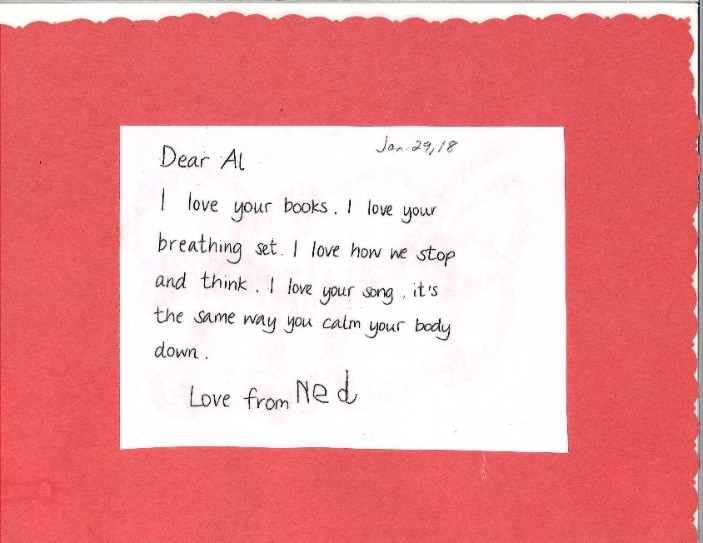 Jan. 29, 18
Dear Al
I love your books. I love your
breathing set. I love how we stop
and think. I love your song, it's
the same way you calm your body
down.
Love from Ned